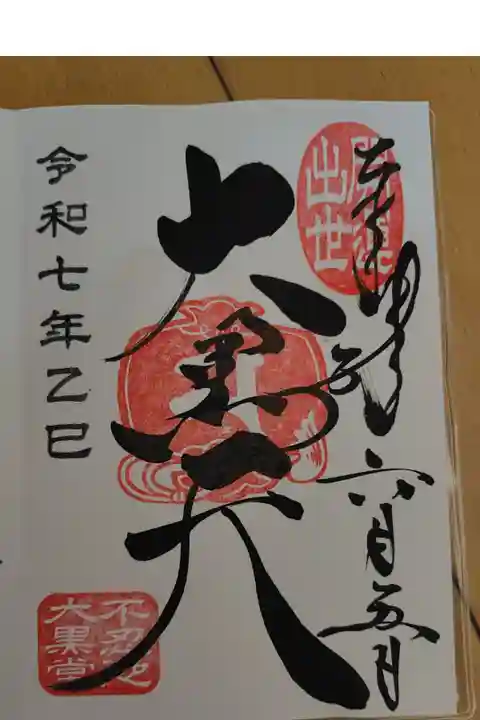 開運
出世
六月五日
大黒天
令和七年乙巳
不忍池
大黒堂